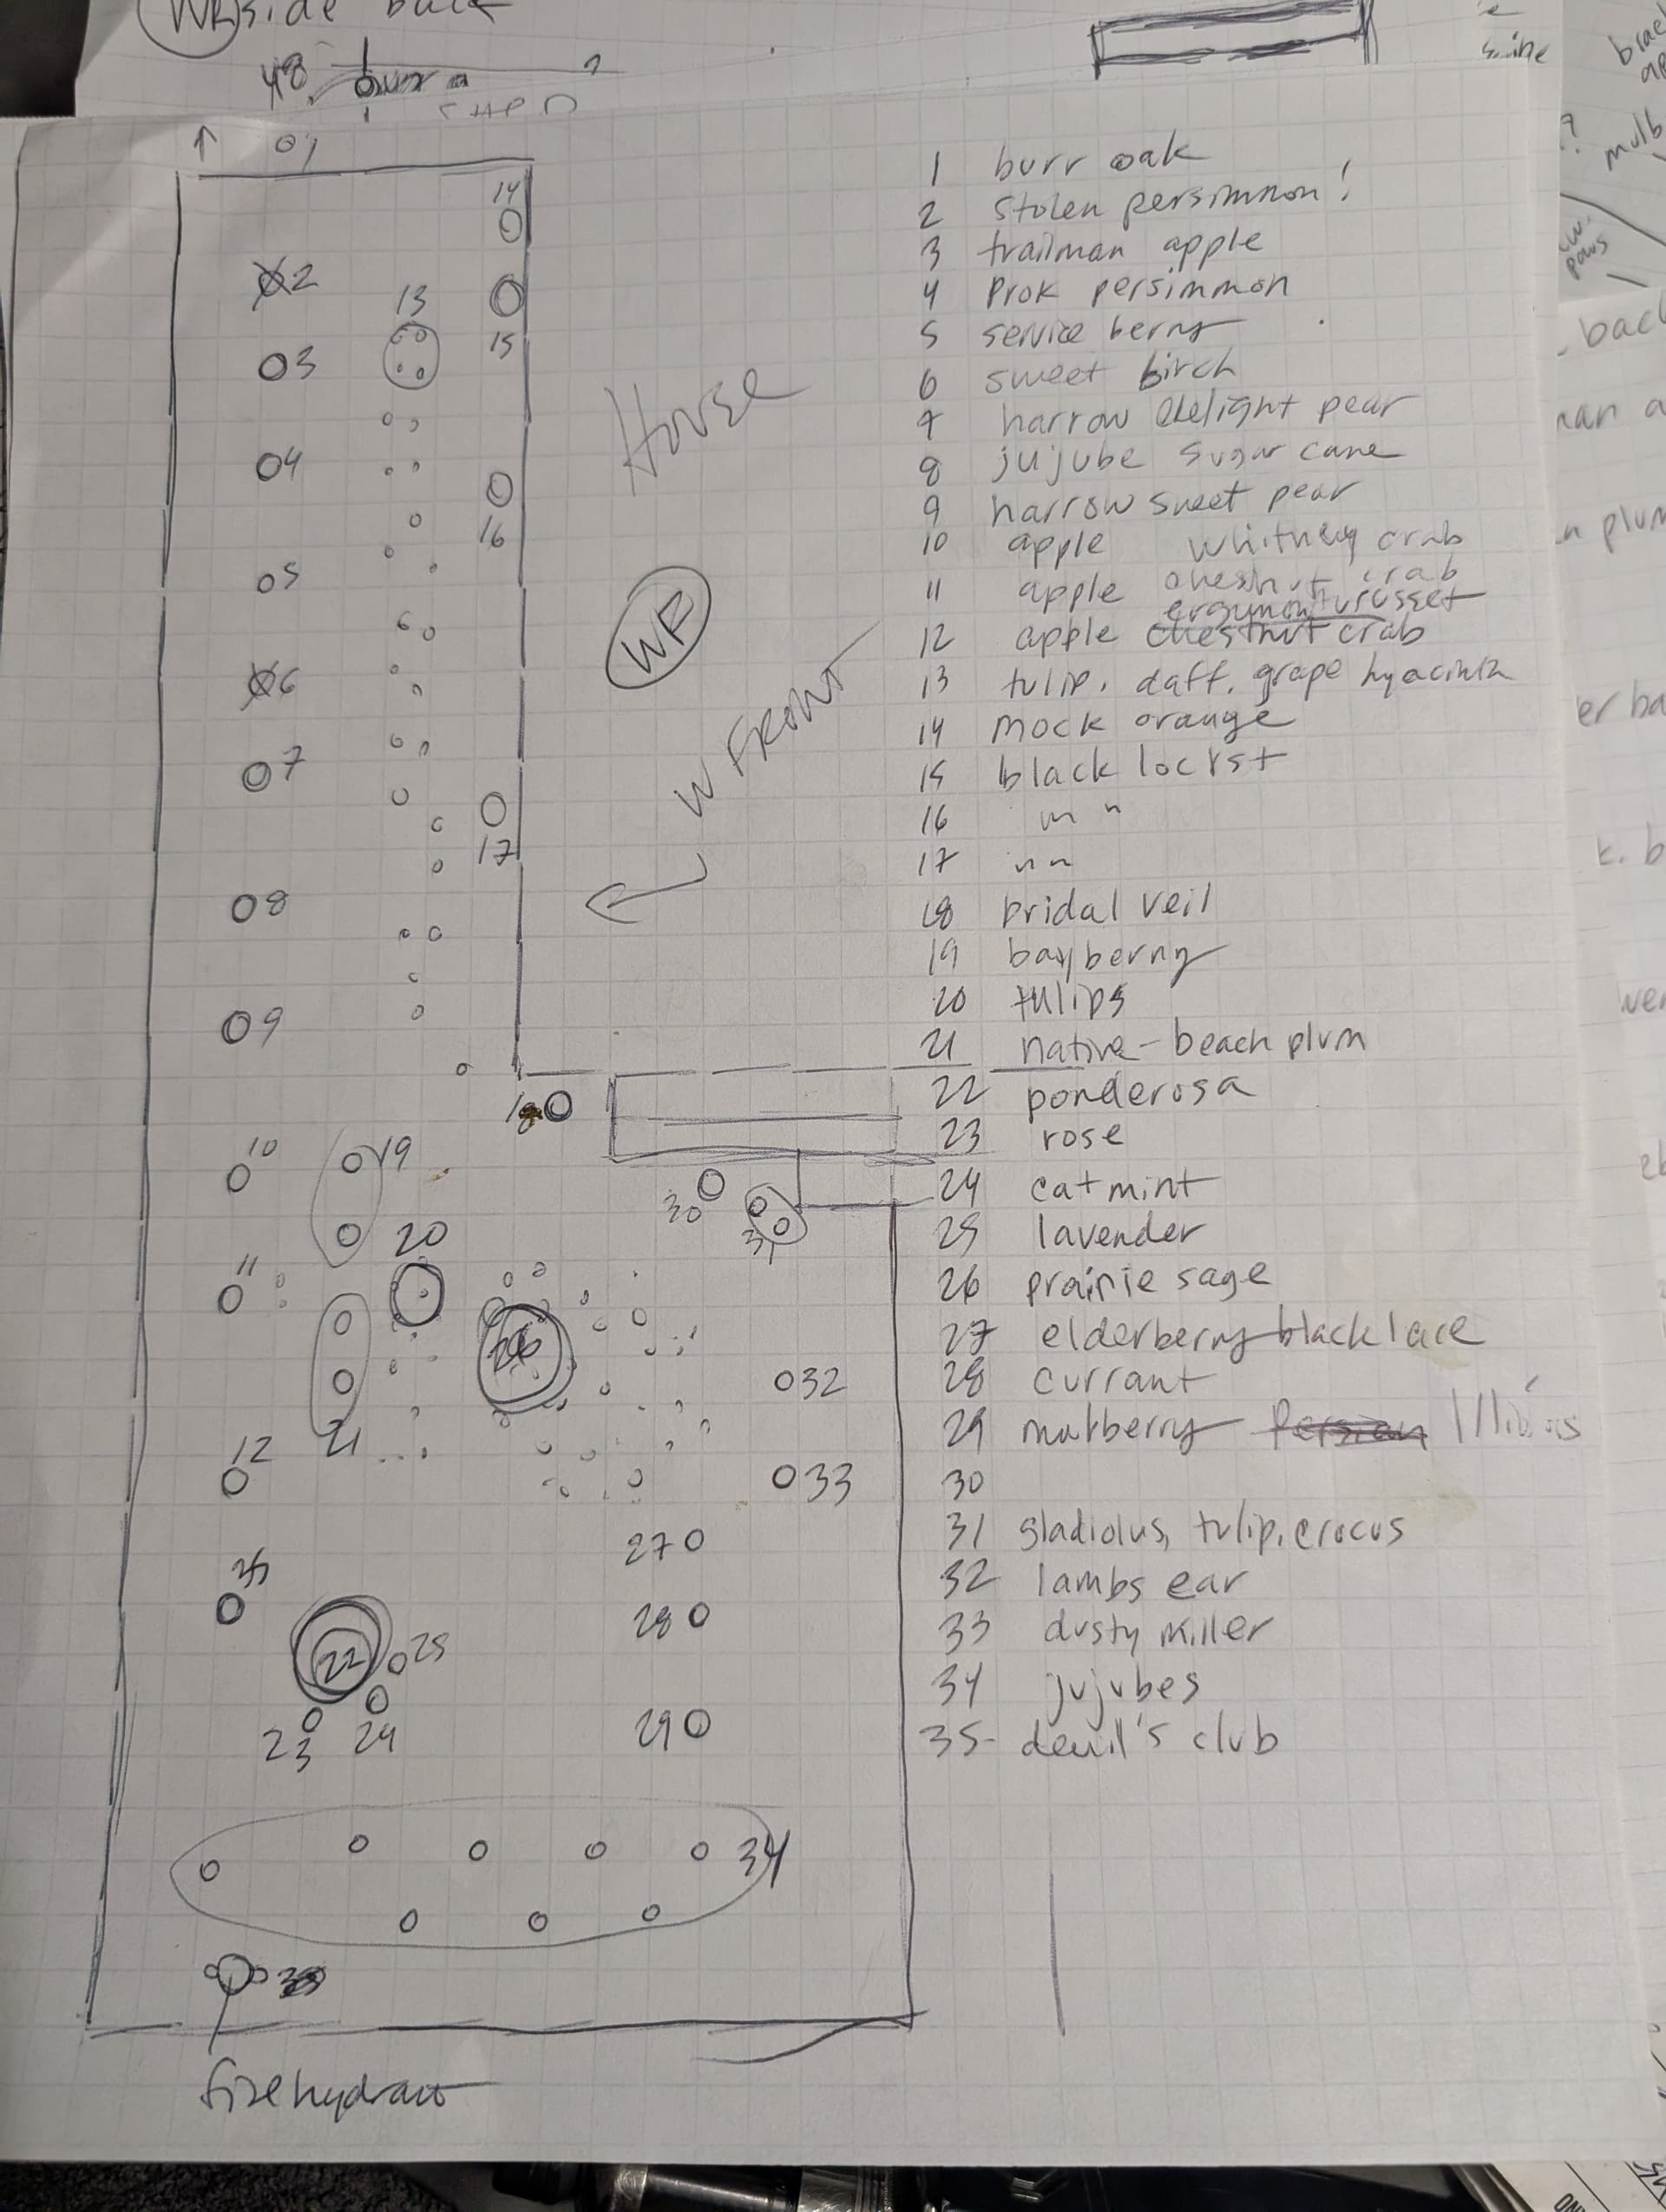 WR side back
48
↑ 01
14
02
13
03
15
04
16
05
06
07
17
08
09
18
10
19
20
11
26
32
21
12
33
27
35
28
22
25
23
24
29
30
31
34
fire hydrant
House
WF
W FRONT
1 burr oak
2 stolen persimmon!
3 trailman apple
4 Prok persimmon
5 service berry
6 sweet birch
7 harrow delight pear
8 jujube sugar cane
9 harrow sweet pear
10 apple whitney crab
11 apple chestnut crab
12 apple chestnut crab
13 tulip, daff, grape hyacinth
14 mock orange
15 black locust
16 " "
17 " "
18 bridal veil
19 bayberry
20 tulips
21 native - beach plum
22 ponderosa
23 rose
24 catmint
25 lavender
26 prairie sage
27 elderberry black lace
28 currant
29 mulberry Persian Illinois
30
31 gladiolus, tulip, crocus
32 lambs ear
33 dusty miller
34 jujubes
35- devil's club
mulb
paws
back
man a
n plum
er ba
k. b